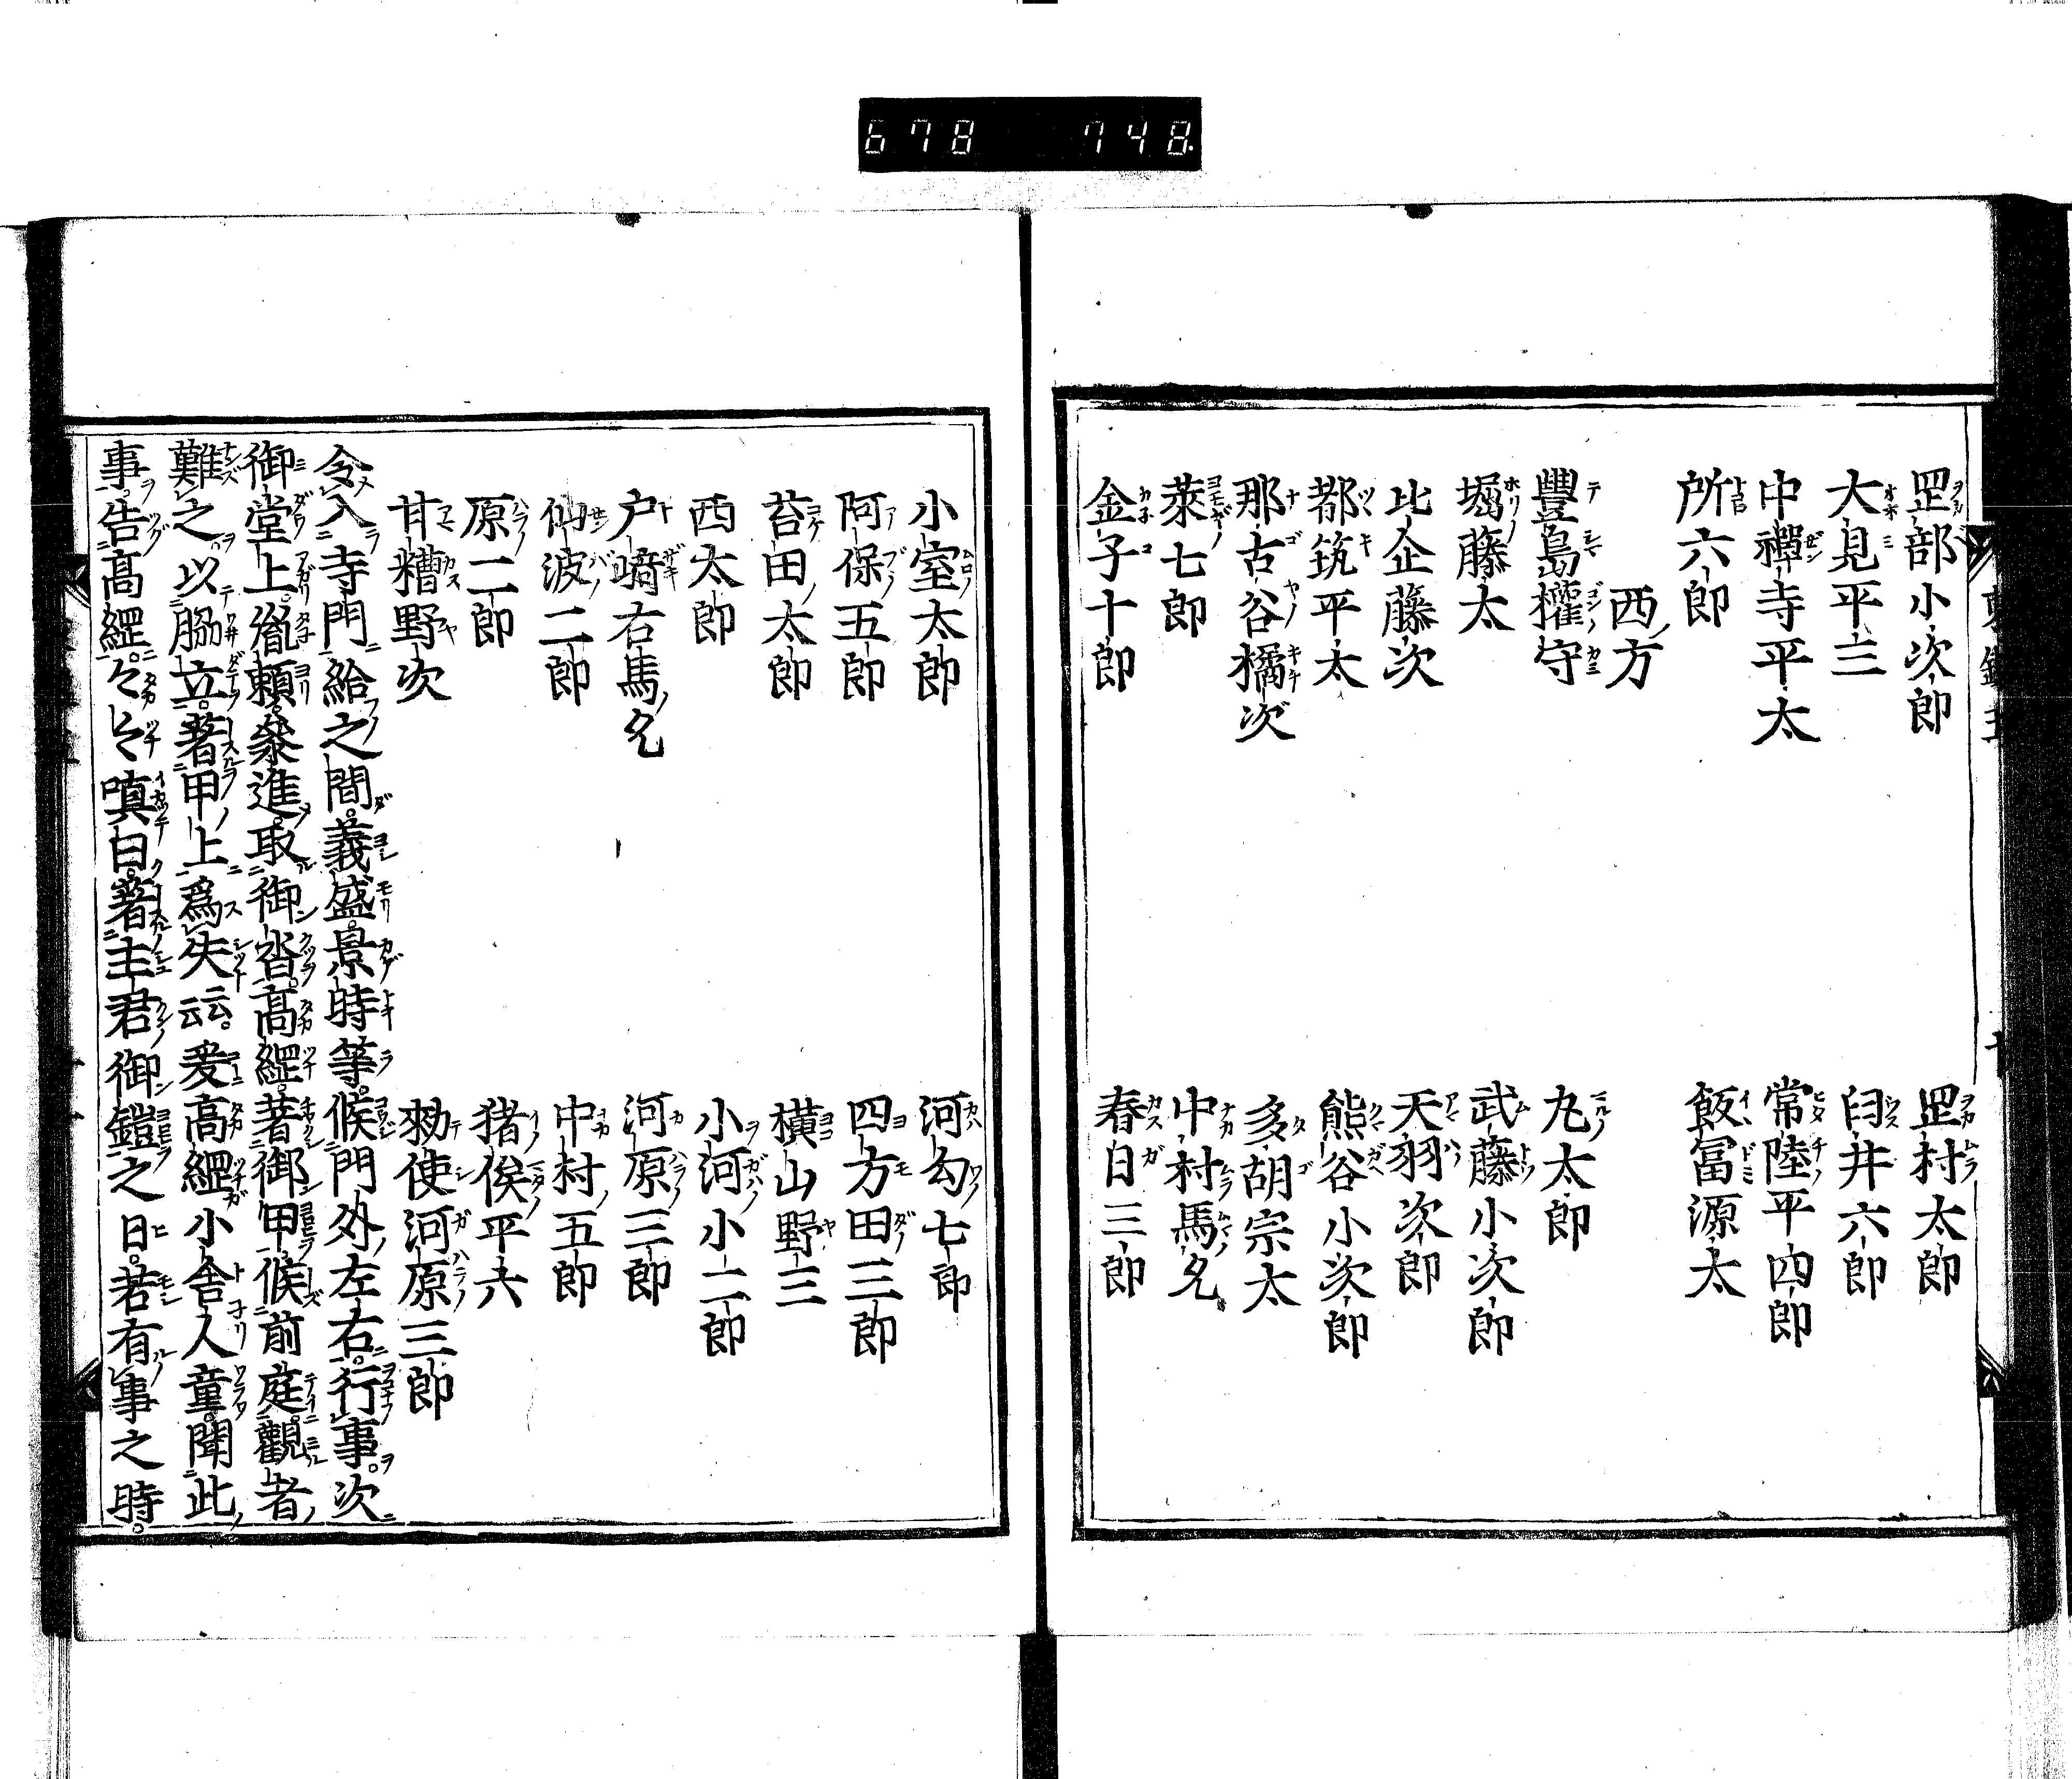 678 748.
罡部小次郎 罡村太郎
大見平三 臼井六郎
中禪寺平太 常陸平四郎
所六郎 飯冨源太
西方
豐島權守 丸太郎
堀藤太 武藤小次郎
比企藤次 天羽次郎
都筑平太 熊谷小次郎
那古谷橘次 多胡宗太
萊七郎 中村馬允
金子十郎 春日三郎
小室太郎 河勾七郎
阿保五郎 四方田三郎
苔田太郎 横山野三
西太郎 小河小二郎
戸﨑右馬允 河原三郎
仙波二郎 中村五郎
原二郎 猪俣平六
甘糟野次 勅使河原三郎
令入寺門給之間。義盛。景時等。候門外左右。行事。次
御堂上。胤頼。參進。取御沓。高經。著御甲。候前庭。觀者
難之。以脇立。著甲上爲失云云。爰高經小舎人童。聞此
事。告高經。々々嗔曰。著主君御鎧之日。若有事之時。